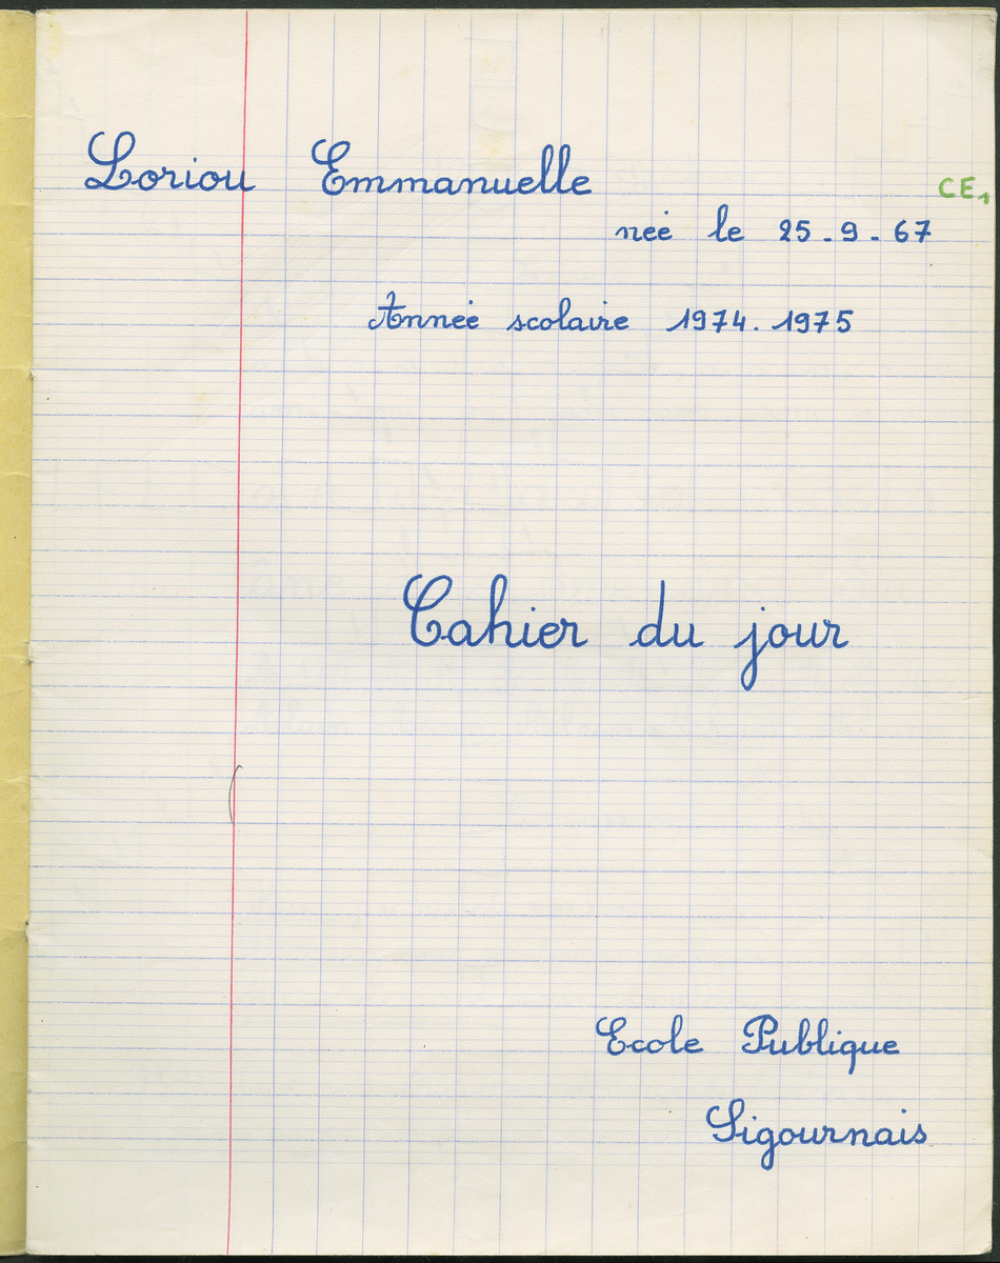 Loriou Emmanuelle
CE1
née le 25.9.67
Année scolaire 1974.1975
Cahier du jour
Ecole Publique
Sigournais